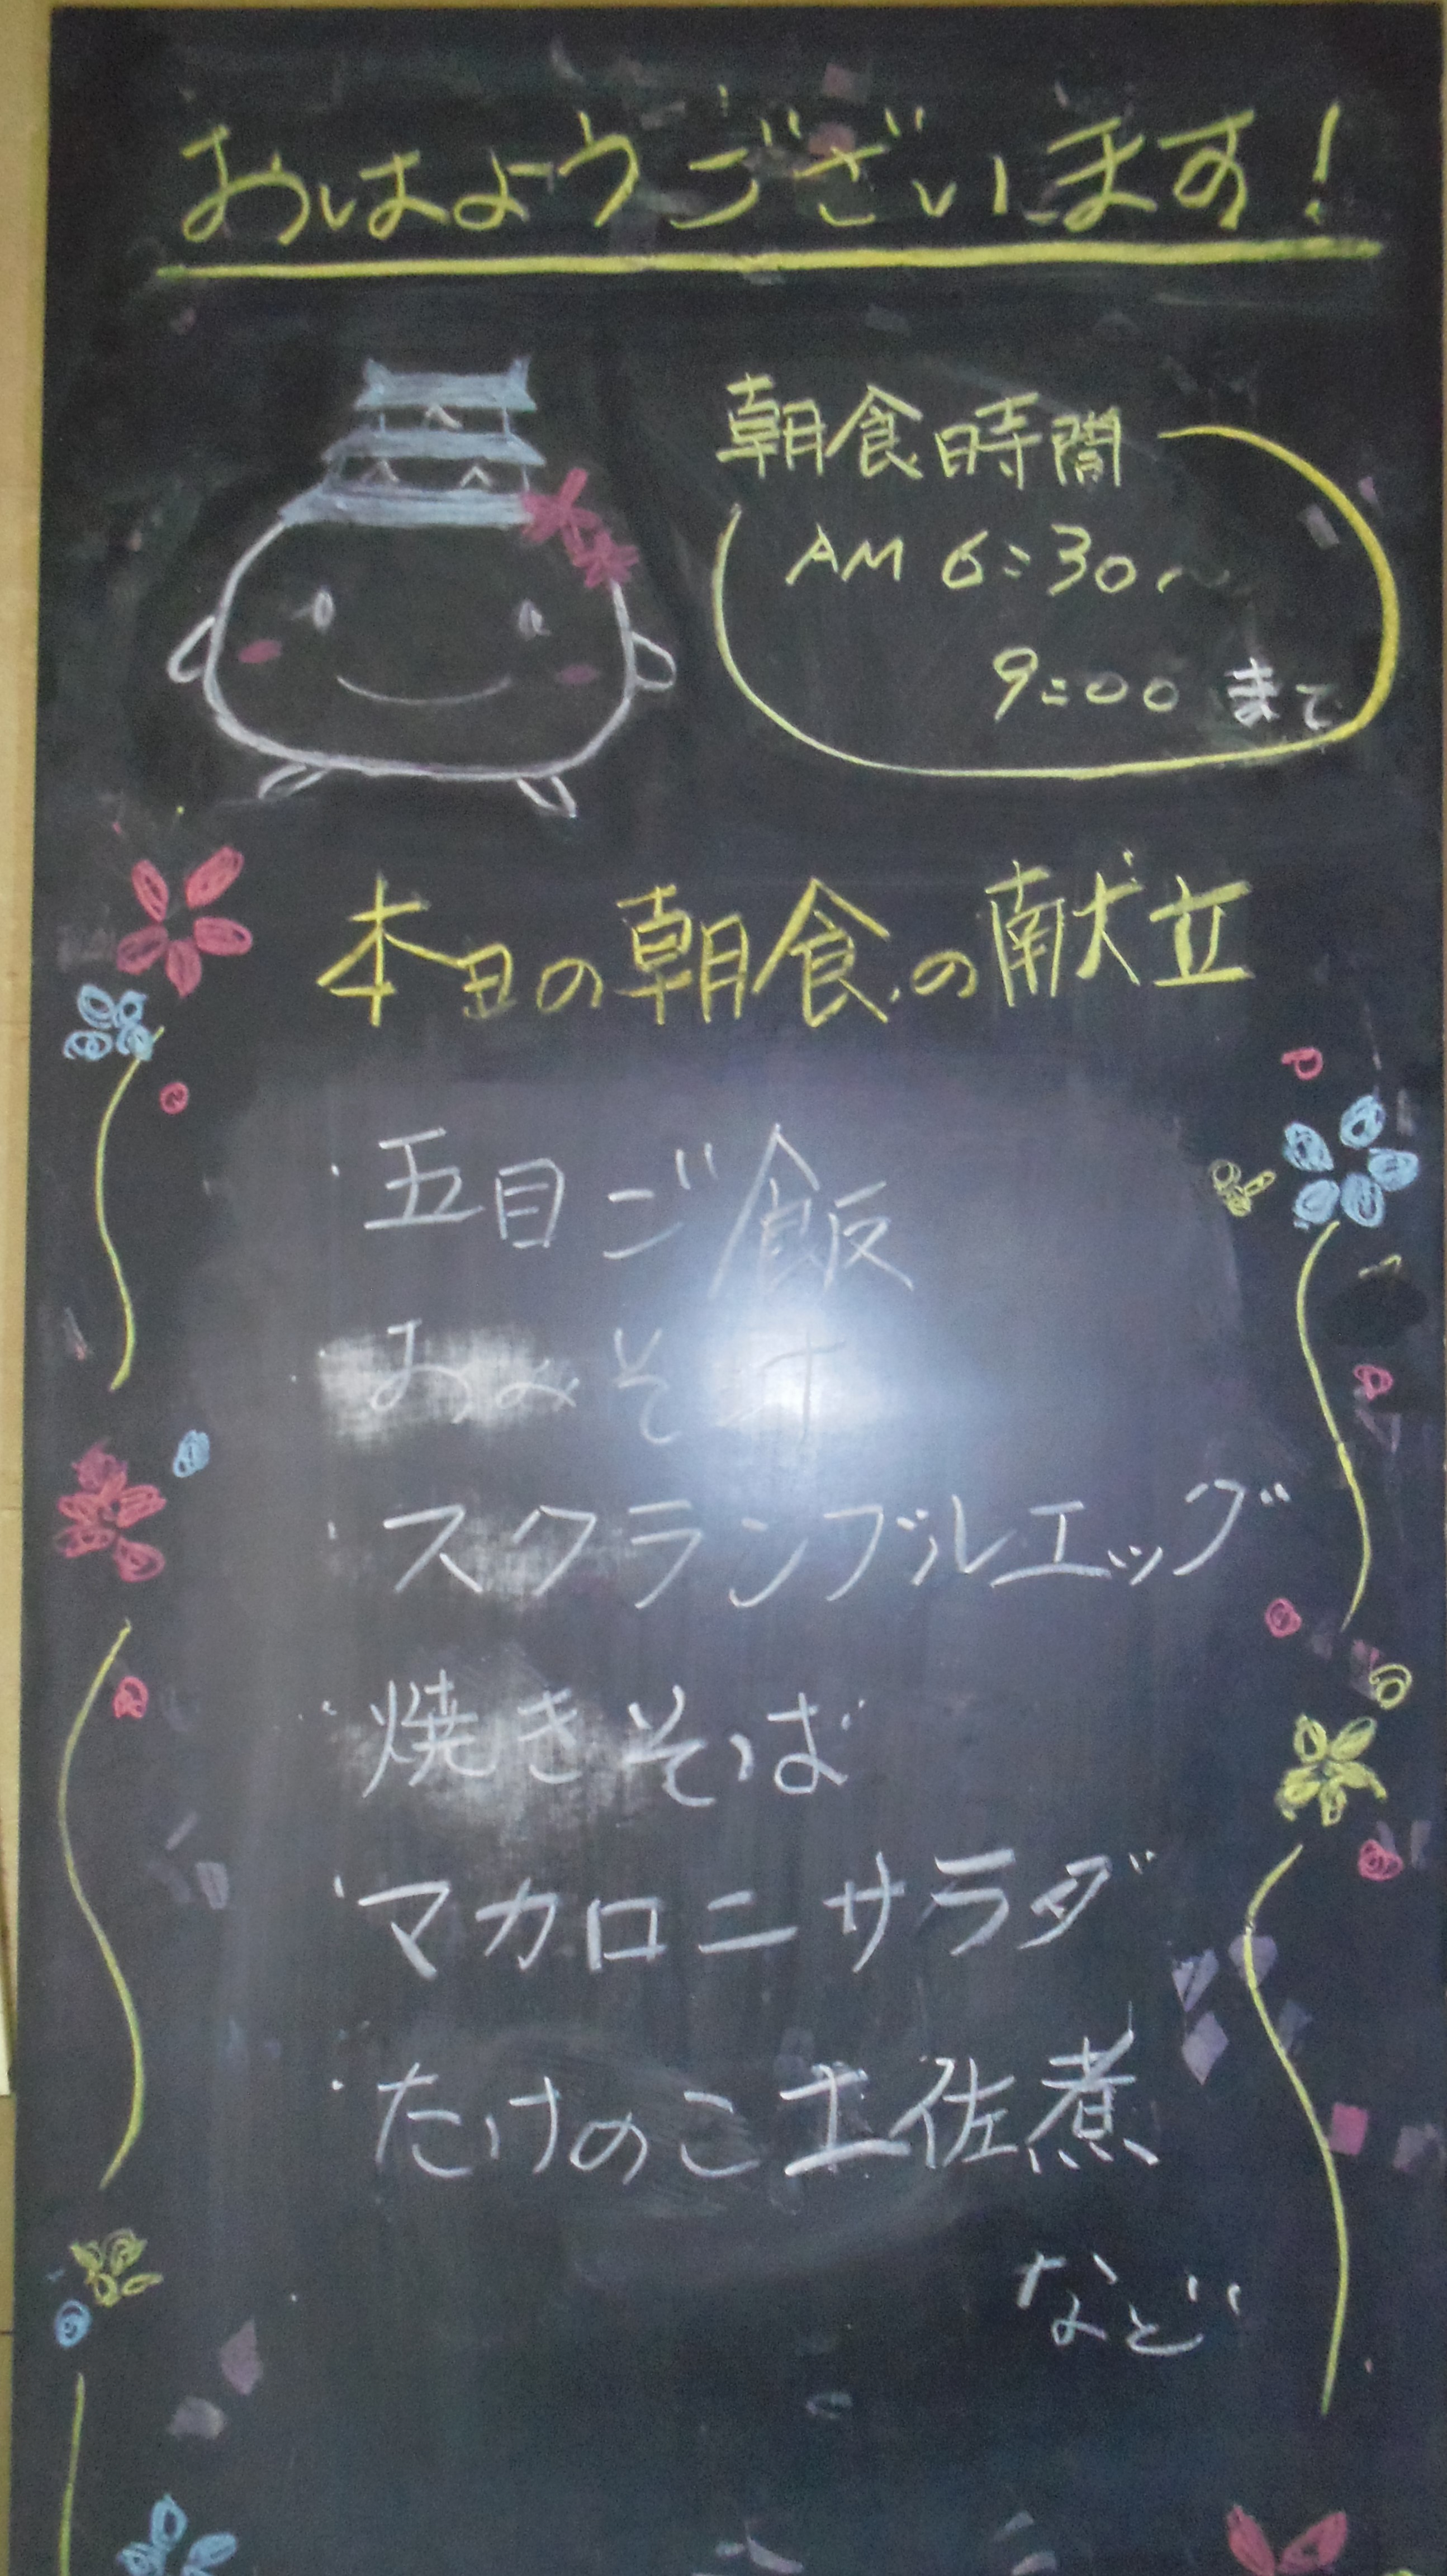 おはようございます!
朝食時間
AM 6:30～
9:00 まで
本日の朝食の献立
・五目ご飯
・おみそ汁
・スクランブルエッグ
・焼きそば
・マカロニサラダ
・たけのこ土佐煮
など